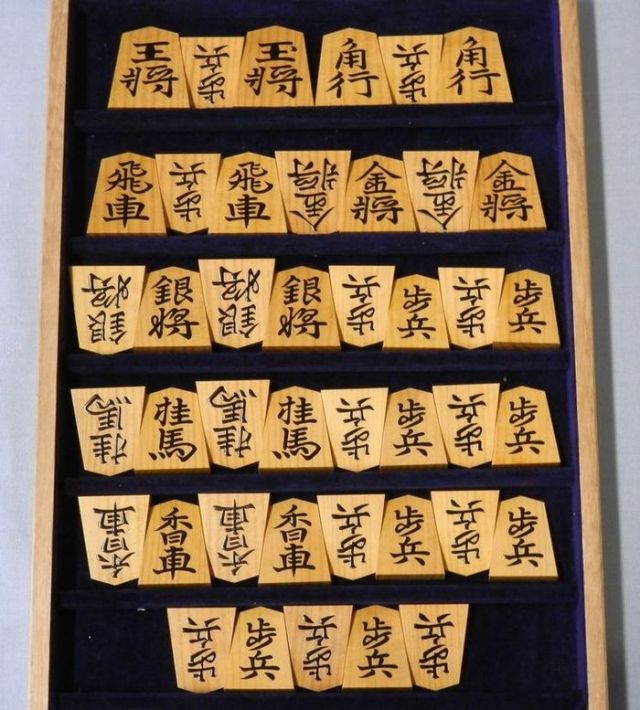 王将 歩兵 玉将 角行 歩兵 角行
飛車 歩兵 飛車 金将 金将 金将 金将
銀将 銀将 銀将 銀将 歩兵 歩兵 歩兵 歩兵
桂馬 桂馬 桂馬 桂馬 歩兵 歩兵 歩兵 歩兵
香車 香車 香車 香車 歩兵 歩兵 歩兵 歩兵
歩兵 歩兵 歩兵 歩兵 歩兵